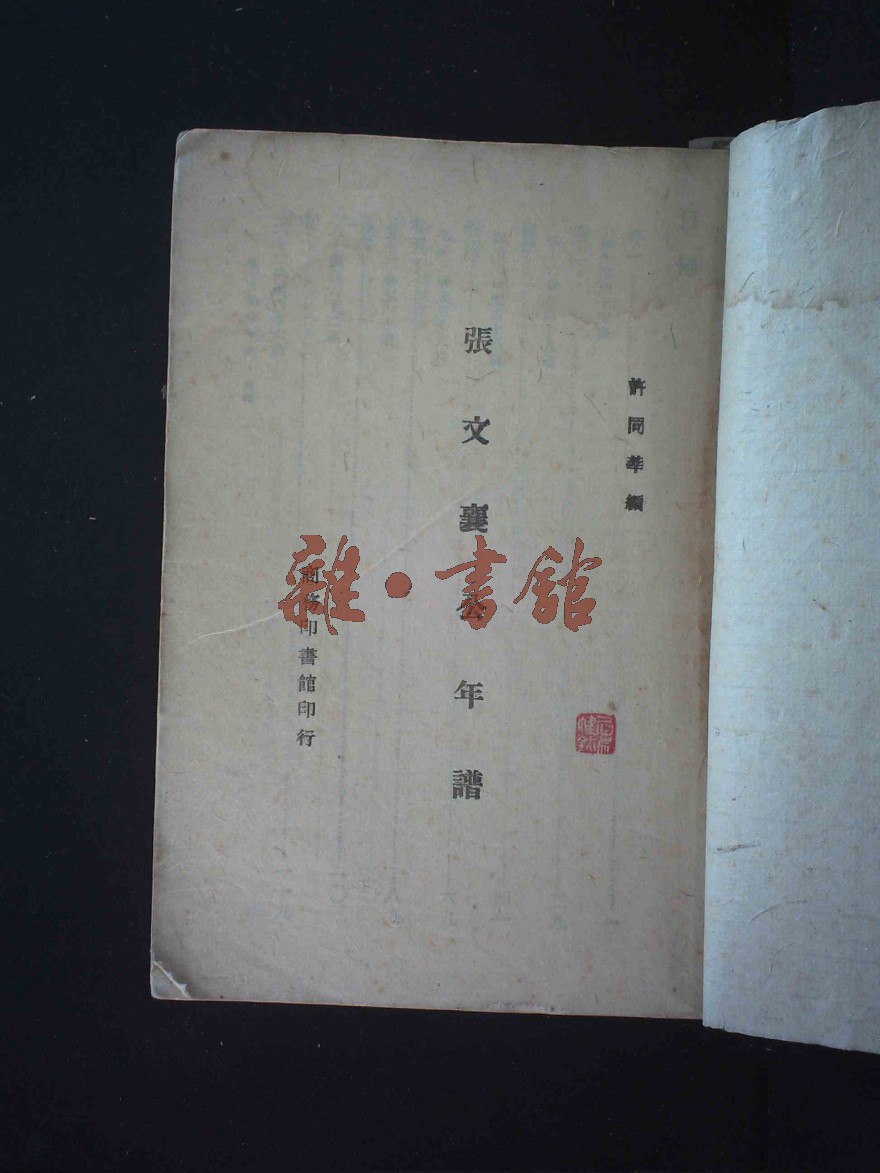 許同莘編
張文襄公年譜
商務印書館印行
雜·書館